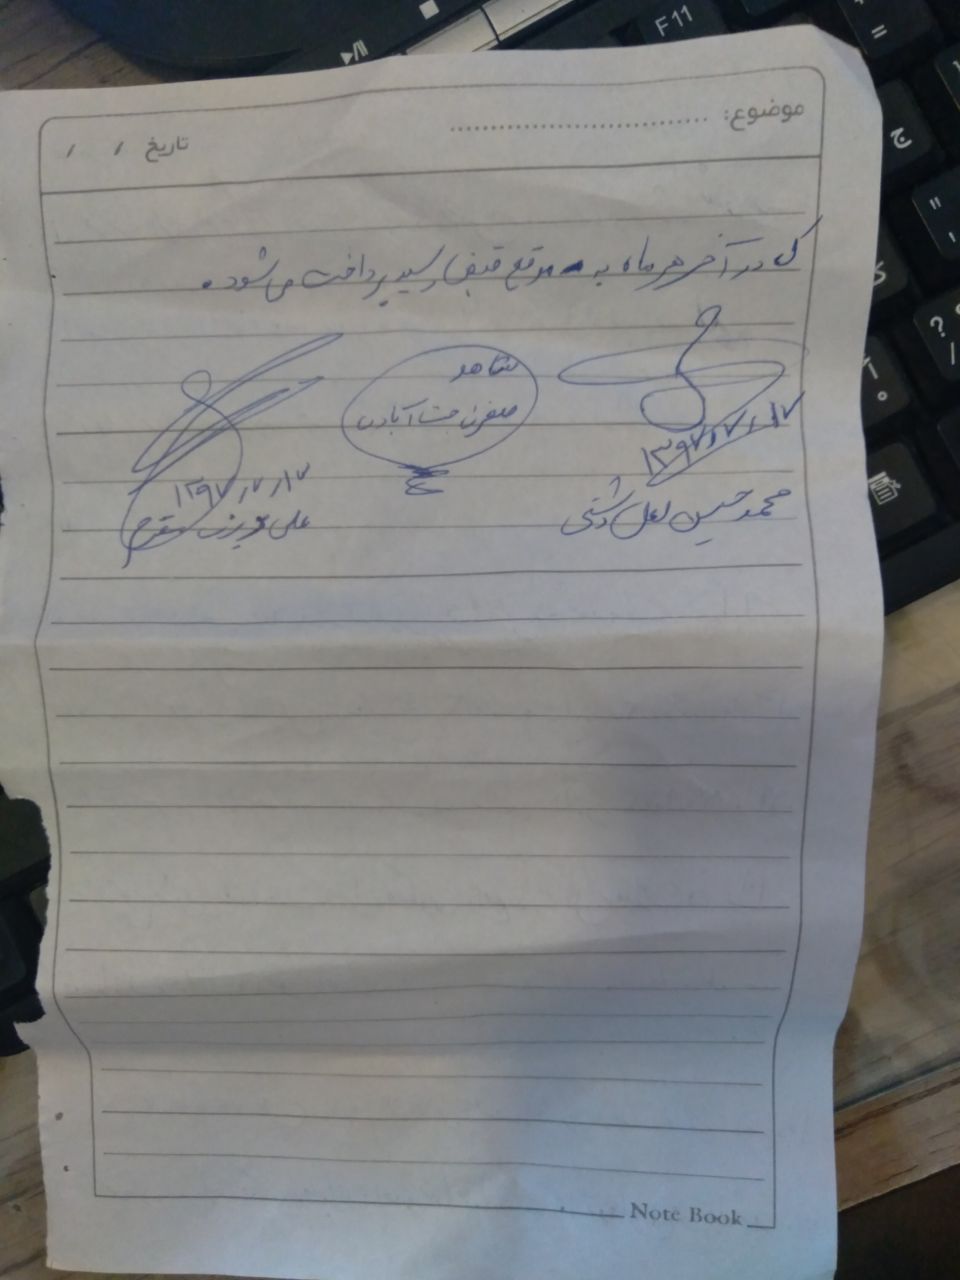 موضوع: ..............................
تاریخ / /
که در آخر هر ماه به موقع قبض رسید پرداخت می‌شود.
شاهد
۱۳۹۷/۷/۱۷
محمد حسین لعل دشتی
۱۳۹۷/۷/۱۷
علی
Note Book
F11
ج